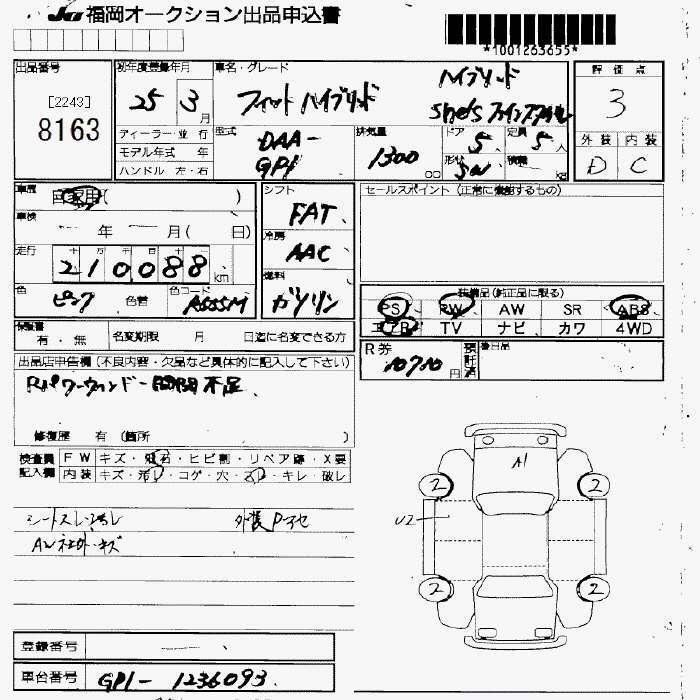 JU 福岡オークション出品申込書
*1001263655*
出品番号
[2243]
8163
初年度登録年月
25 3月
車名・グレード
ハイブリッド
フィット ハイブリッド
評価点
3
ディーラー・並行
モデル年式 年
ハンドル 左・右
型式
DAA-
GP1
排気量
1300
cc
ドア
5
定員
5人
形状
5W
積載
kg
外装 内装
D C
車歴
自家用( )
車検
年 月( 日)
走行
十 万 千 百 十 一
210088 km
色
ピンク 色替
色コード
シフト
FAT
冷房
AAC
燃料
ガソリン
セールスポイント (正常に機能するもの)
装備品(純正品に限る)
PS PW AW SR ABS
エアB TV ナビ カワ 4WD
保証書
有・無
名変期限 月 日迄に名変できる方
R券
10710円
預託済
後日品
出品店申告欄 (不良内容・欠品など具体的に記入して下さい)
Rパワーウィンドー開閉不良
修復歴 有 (箇所 )
検査員
記入欄
FW キズ・飛石・ヒビ割・リペア跡・X要
内装 キズ・汚レ・コゲ・穴・スレ・キレ・破レ
シートスレ・汚レ
AW社外・キズ
A1
U2
2
2
2
2
登録番号
車台番号 GP1-1236093